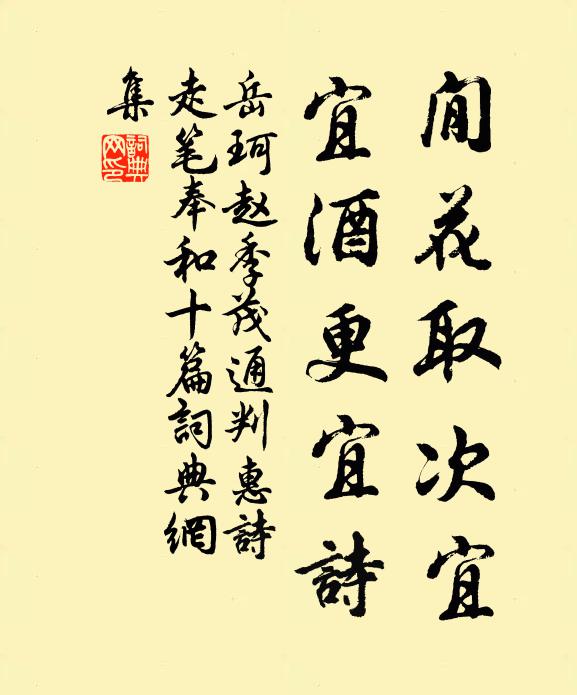 閒花取次宜
宜酒更宜詩
岳珂赵季茂通判惠詩
走笔奉和十篇詞典網
集
詞典
网印